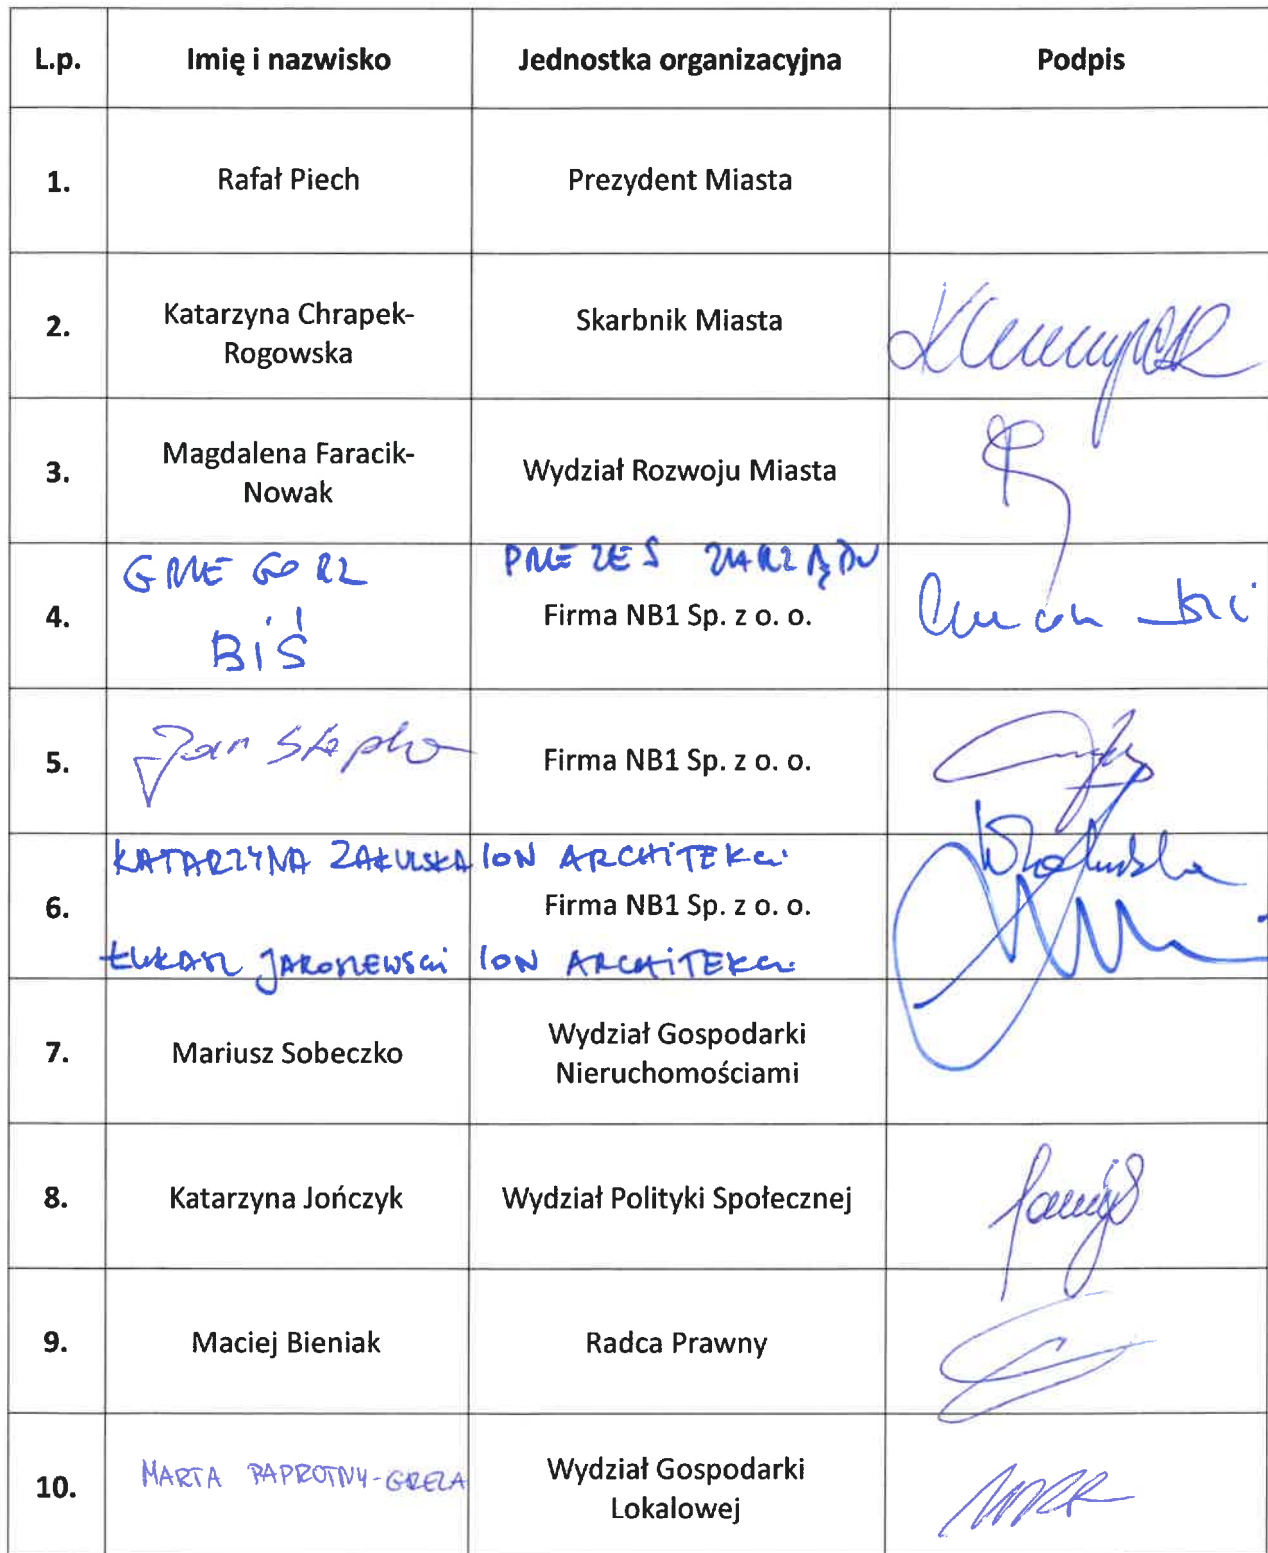 L.p. Imię i nazwisko Jednostka organizacyjna Podpis
1. Rafał Piech Prezydent Miasta
2. Katarzyna Chrapek-
Rogowska Skarbnik Miasta
3. Magdalena Faracik-
Nowak Wydział Rozwoju Miasta
4. GRZEGORZ
BIŚ
PREZES ZARZĄDU
Firma NB1 Sp. z o. o.
5. Jan Firma NB1 Sp. z o. o.
KATARZYNA ZAŁUSKA ION ARCHITEKCI
6. Firma NB1 Sp. z o. o.
ŁUKASZ JAROSZEWSKI ION ARCHITEKCI
7. Mariusz Sobeczko Wydział Gospodarki
Nieruchomościami
8. Katarzyna Jończyk Wydział Polityki Społecznej
9. Maciej Bieniak Radca Prawny
10. MARTA PAPROTNY-GRELA Wydział Gospodarki
Lokalowej